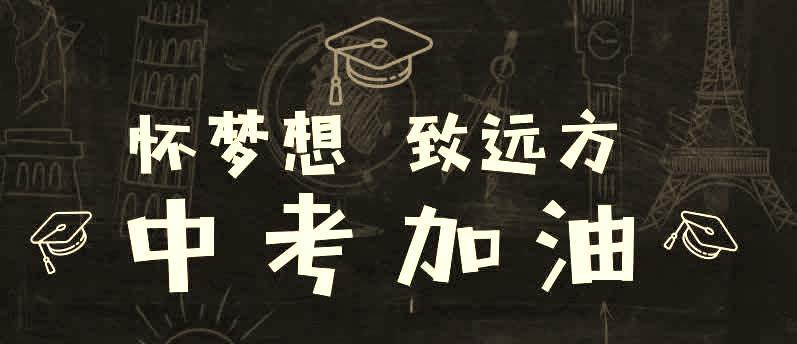 怀梦想 致远方
中考加油